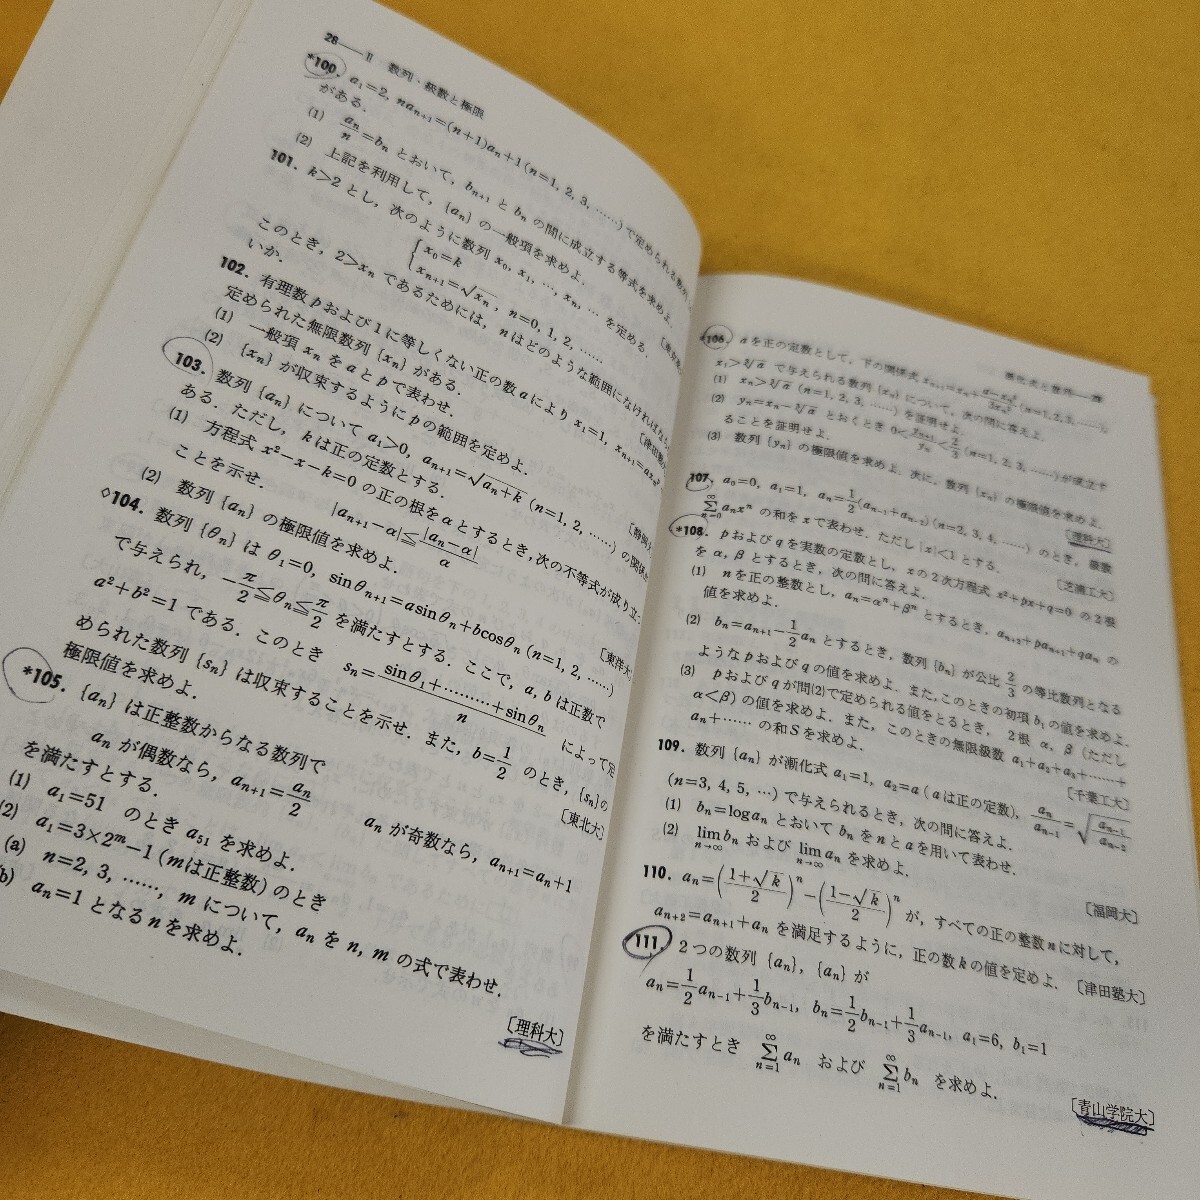 28——II 数列・級数と極限
*100. a₁=2, naₙ₊₁=(n+1)aₙ+1 (n=1, 2, 3, ……) で定められる数列
がある.
(1) aₙ/n=bₙ とおいて, bₙ₊₁ と bₙ の間に成立する等式を求めよ.
(2) 上記を利用して, {aₙ} の一般項を求めよ.
101. k>2 とし, 次のように数列 x₀, x₁, …, xₙ, … を定める.
{x₀=k
xₙ₊₁=√xₙ, n=0, 1, 2, ……
このとき, 2>xₙ であるためには, n はどのような範囲になければ
いか.
102. 有理数 p および 1 に等しくない正の数 a により x₁=1, xₙ₊₁=axₙᵖ
定められた無限数列 {xₙ} がある.
(1) 一般項 xₙ を a と p で表わせ.
(2) {xₙ} が収束するように p の範囲を定めよ.
103. 数列 {aₙ} について a₁>0, aₙ₊₁=√(aₙ+k) (n=1, 2, ……) の関係
ある. ただし, k は正の定数とする.
(1) 方程式 x²−x−k=0 の正の根を α とするとき, 次の不等式が成り立つ
ことを示せ.
|aₙ₊₁−α|≦|aₙ−α|/α
(2) 数列 {aₙ} の極限値を求めよ.
[東洋大]
◇104. 数列 {θₙ} は θ₁=0, sinθₙ₊₁=asinθₙ+bcosθₙ (n=1, 2, ……)
で与えられ, −π/2≦θₙ≦π/2 を満たすとする. ここで, a, b は正数で
a²+b²=1 である. このとき sₙ=(sinθ₁+………+sinθₙ)/n によって定
められた数列 {sₙ} は収束することを示せ. また, b=1/2 のとき, {sₙ}の
極限値を求めよ.
[東北大]
*105. {aₙ} は正整数からなる数列で
aₙ が偶数なら, aₙ₊₁=aₙ/2 aₙ が奇数なら, aₙ₊₁=aₙ+1
を満たすとする.
(1) a₁=51 のとき a₅₁ を求めよ.
(2) a₁=3×2ᵐ−1 (mは正整数) のとき
(a) n=2, 3, ……, m について, aₙ を n, m の式で表わせ.
(b) aₙ=1 となる n を求めよ.
[理科大]
*106. a を正の定数として, 下の関係式 xₙ₊₁=xₙ+(a−xₙ³)/3xₙ² (n=1,2,3,……),
x₁>∛a で与えられる数列 {xₙ} について, 次の問に答えよ.
(1) xₙ>∛a (n=1, 2, 3, ……) を証明せよ.
(2) yₙ=xₙ−∛a とおくとき 0<yₙ₊₁/yₙ<2/3 (n=1, 2, 3, ……) が成立す
ることを証明せよ.
(3) 数列 {yₙ} の極限値を求めよ. 次に, 数列 {xₙ} の極限値を求めよ.
[理科大]
107. a₀=0, a₁=1, aₙ=1/2(aₙ₋₁+aₙ₋₂) (n=2, 3, 4, ……) のとき, 級数
∞Σn=0 aₙxⁿ の和を x で表わせ. ただし |x|<1 とする.
[芝浦工大]
*108. p および q を実数の定数とし, x の 2 次方程式 x²+px+q=0 の 2 根
を α, β とするとき, 次の問に答えよ.
(1) n を正の整数とし, aₙ=αⁿ+βⁿ とするとき, aₙ₊₂+paₙ₊₁+qaₙ の
値を求めよ.
(2) bₙ=aₙ₊₁−1/2aₙ とするとき, 数列 {bₙ} が公比 2/3 の等比数列となる
ような p および q の値を求めよ. また, このときの初項 b₁ の値を求めよ.
(3) p および q が問(2)で定められる値をとるとき, 2根 α, β (ただし
α<β) の値を求めよ. また, このときの無限級数 a₁+a₂+a₃+……+
aₙ+…… の和 S を求めよ.
[千葉工大]
109. 数列 {aₙ} が漸化式 a₁=1, a₂=a (a は正の定数), aₙ/aₙ₋₁=√(aₙ₋₁/aₙ₋₂)
(n=3, 4, 5, …) で与えられるとき, 次の問に答えよ.
(1) bₙ=logaₙ とおいて bₙ を n と a を用いて表わせ.
(2) lim n→∞ bₙ および lim n→∞ aₙ を求めよ.
[福岡大]
110. aₙ=((1+√k)/2)ⁿ−((1−√k)/2)ⁿ が, すべての正の整数 n に対して,
aₙ₊₂=aₙ₊₁+aₙ を満足するように, 正の数 k の値を定めよ. [津田塾大]
111. 2つの数列 {aₙ}, {aₙ} が
aₙ=1/2aₙ₋₁+1/3bₙ₋₁, bₙ=1/2bₙ₋₁+1/3aₙ₋₁, a₁=6, b₁=1
を満たすとき ∞Σn=1 aₙ および ∞Σn=1 bₙ を求めよ.
[青山学院大]